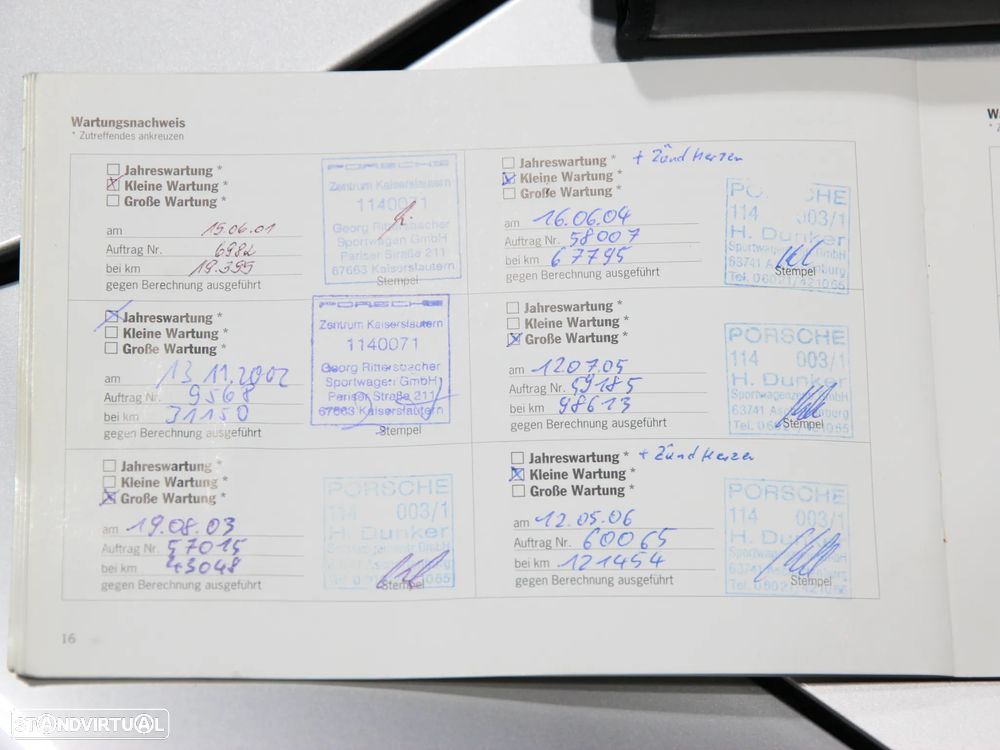 Wartungsnachweis
* Zutreffendes ankreuzen
Jahreswartung *
Kleine Wartung *
Große Wartung *
am 15.06.01
Auftrag Nr. 6982
bei km 19.395
gegen Berechnung ausgeführt
PORSCHE
Zentrum Kaiserslautern
1140071
Georg Rittersbacher
Sportwagen GmbH
Pariser Straße 211
67663 Kaiserslautern
Stempel
Jahreswartung *
Kleine Wartung *
Große Wartung *
am 13 11.2002
Auftrag Nr. 9568
bei km 31150
gegen Berechnung ausgeführt
PORSCHE
Zentrum Kaiserslautern
1140071
Georg Rittersbacher
Sportwagen GmbH
Pariser Straße 211
67663 Kaiserslautern
Stempel
Jahreswartung *
Kleine Wartung *
Große Wartung *
am 19.08.03
Auftrag Nr. 57015
bei km 43048
gegen Berechnung ausgeführt
PORSCHE
114 003/1
H. Dunker
Stempel
Jahreswartung * + Zündkerzen
Kleine Wartung *
Große Wartung *
am 16.06.04
Auftrag Nr. 58007
bei km 67795
gegen Berechnung ausgeführt
114 003/1
H. Dunker
63741
Tel. 06021/421055
Stempel
Jahreswartung *
Kleine Wartung *
Große Wartung *
am 120705
Auftrag Nr. 59185
bei km 98613
gegen Berechnung ausgeführt
PORSCHE
114 003/1
H. Dunker
63741
Stempel
Jahreswartung * + Zündkerzen
Kleine Wartung *
Große Wartung *
am 12.05.06
Auftrag Nr. 60065
bei km 121454
gegen Berechnung ausgeführt
PORSCHE
114 003/1
63741
Stempel
16
STANDVIRTUAL